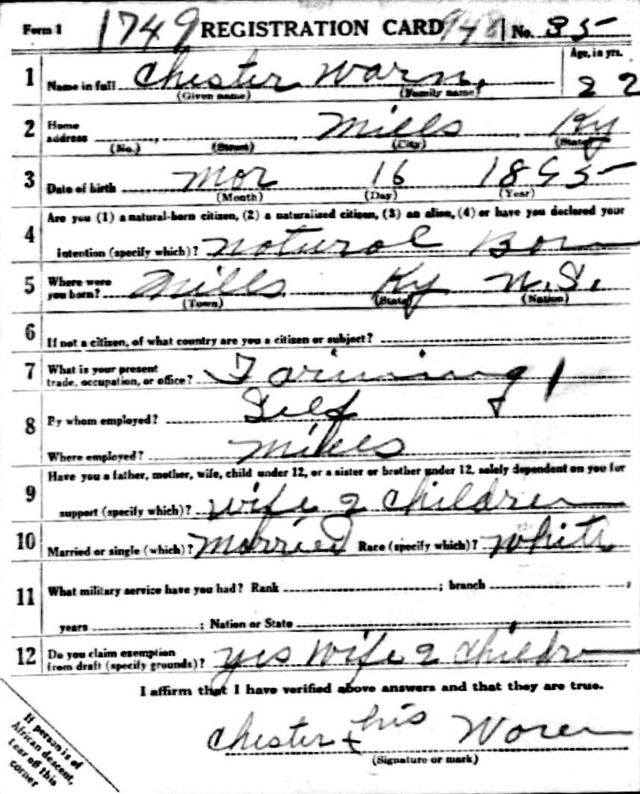 Form 1 1749 REGISTRATION CARD 948 No. 35
Age, in yrs.
1 Name in full Chester Warn. 22
(Given name) (Family name)
2 Home address Mills Ky
(No.) (Street) (City) (State)
3 Date of birth Mar 16 1895
(Month) (Day) (Year)
Are you (1) a natural-born citizen, (2) a naturalized citizen, (3) an alien, (4) or have you declared your
4 intention (specify which)? Natural Born
5 Where were you born? Mills Ky U.S.
(Town) (State) (Nation)
6 If not a citizen, of what country are you a citizen or subject?
7 What is your present trade, occupation, or office? Farming 1
8 By whom employed? Self
Where employed? Mills
Have you a father, mother, wife, child under 12, or a sister or brother under 12, solely dependent on you for
9 support (specify which)? Wife 2 children
10 Married or single (which)? Married Race (specify which)? White
11 What military service have you had? Rank ; branch ;
years ; Nation or State
12 Do you claim exemption from draft (specify grounds)? yes Wife 2 children
I affirm that I have verified above answers and that they are true.
Chester his x
(Signature or mark)
If person is of
African descent,
tear off this
corner